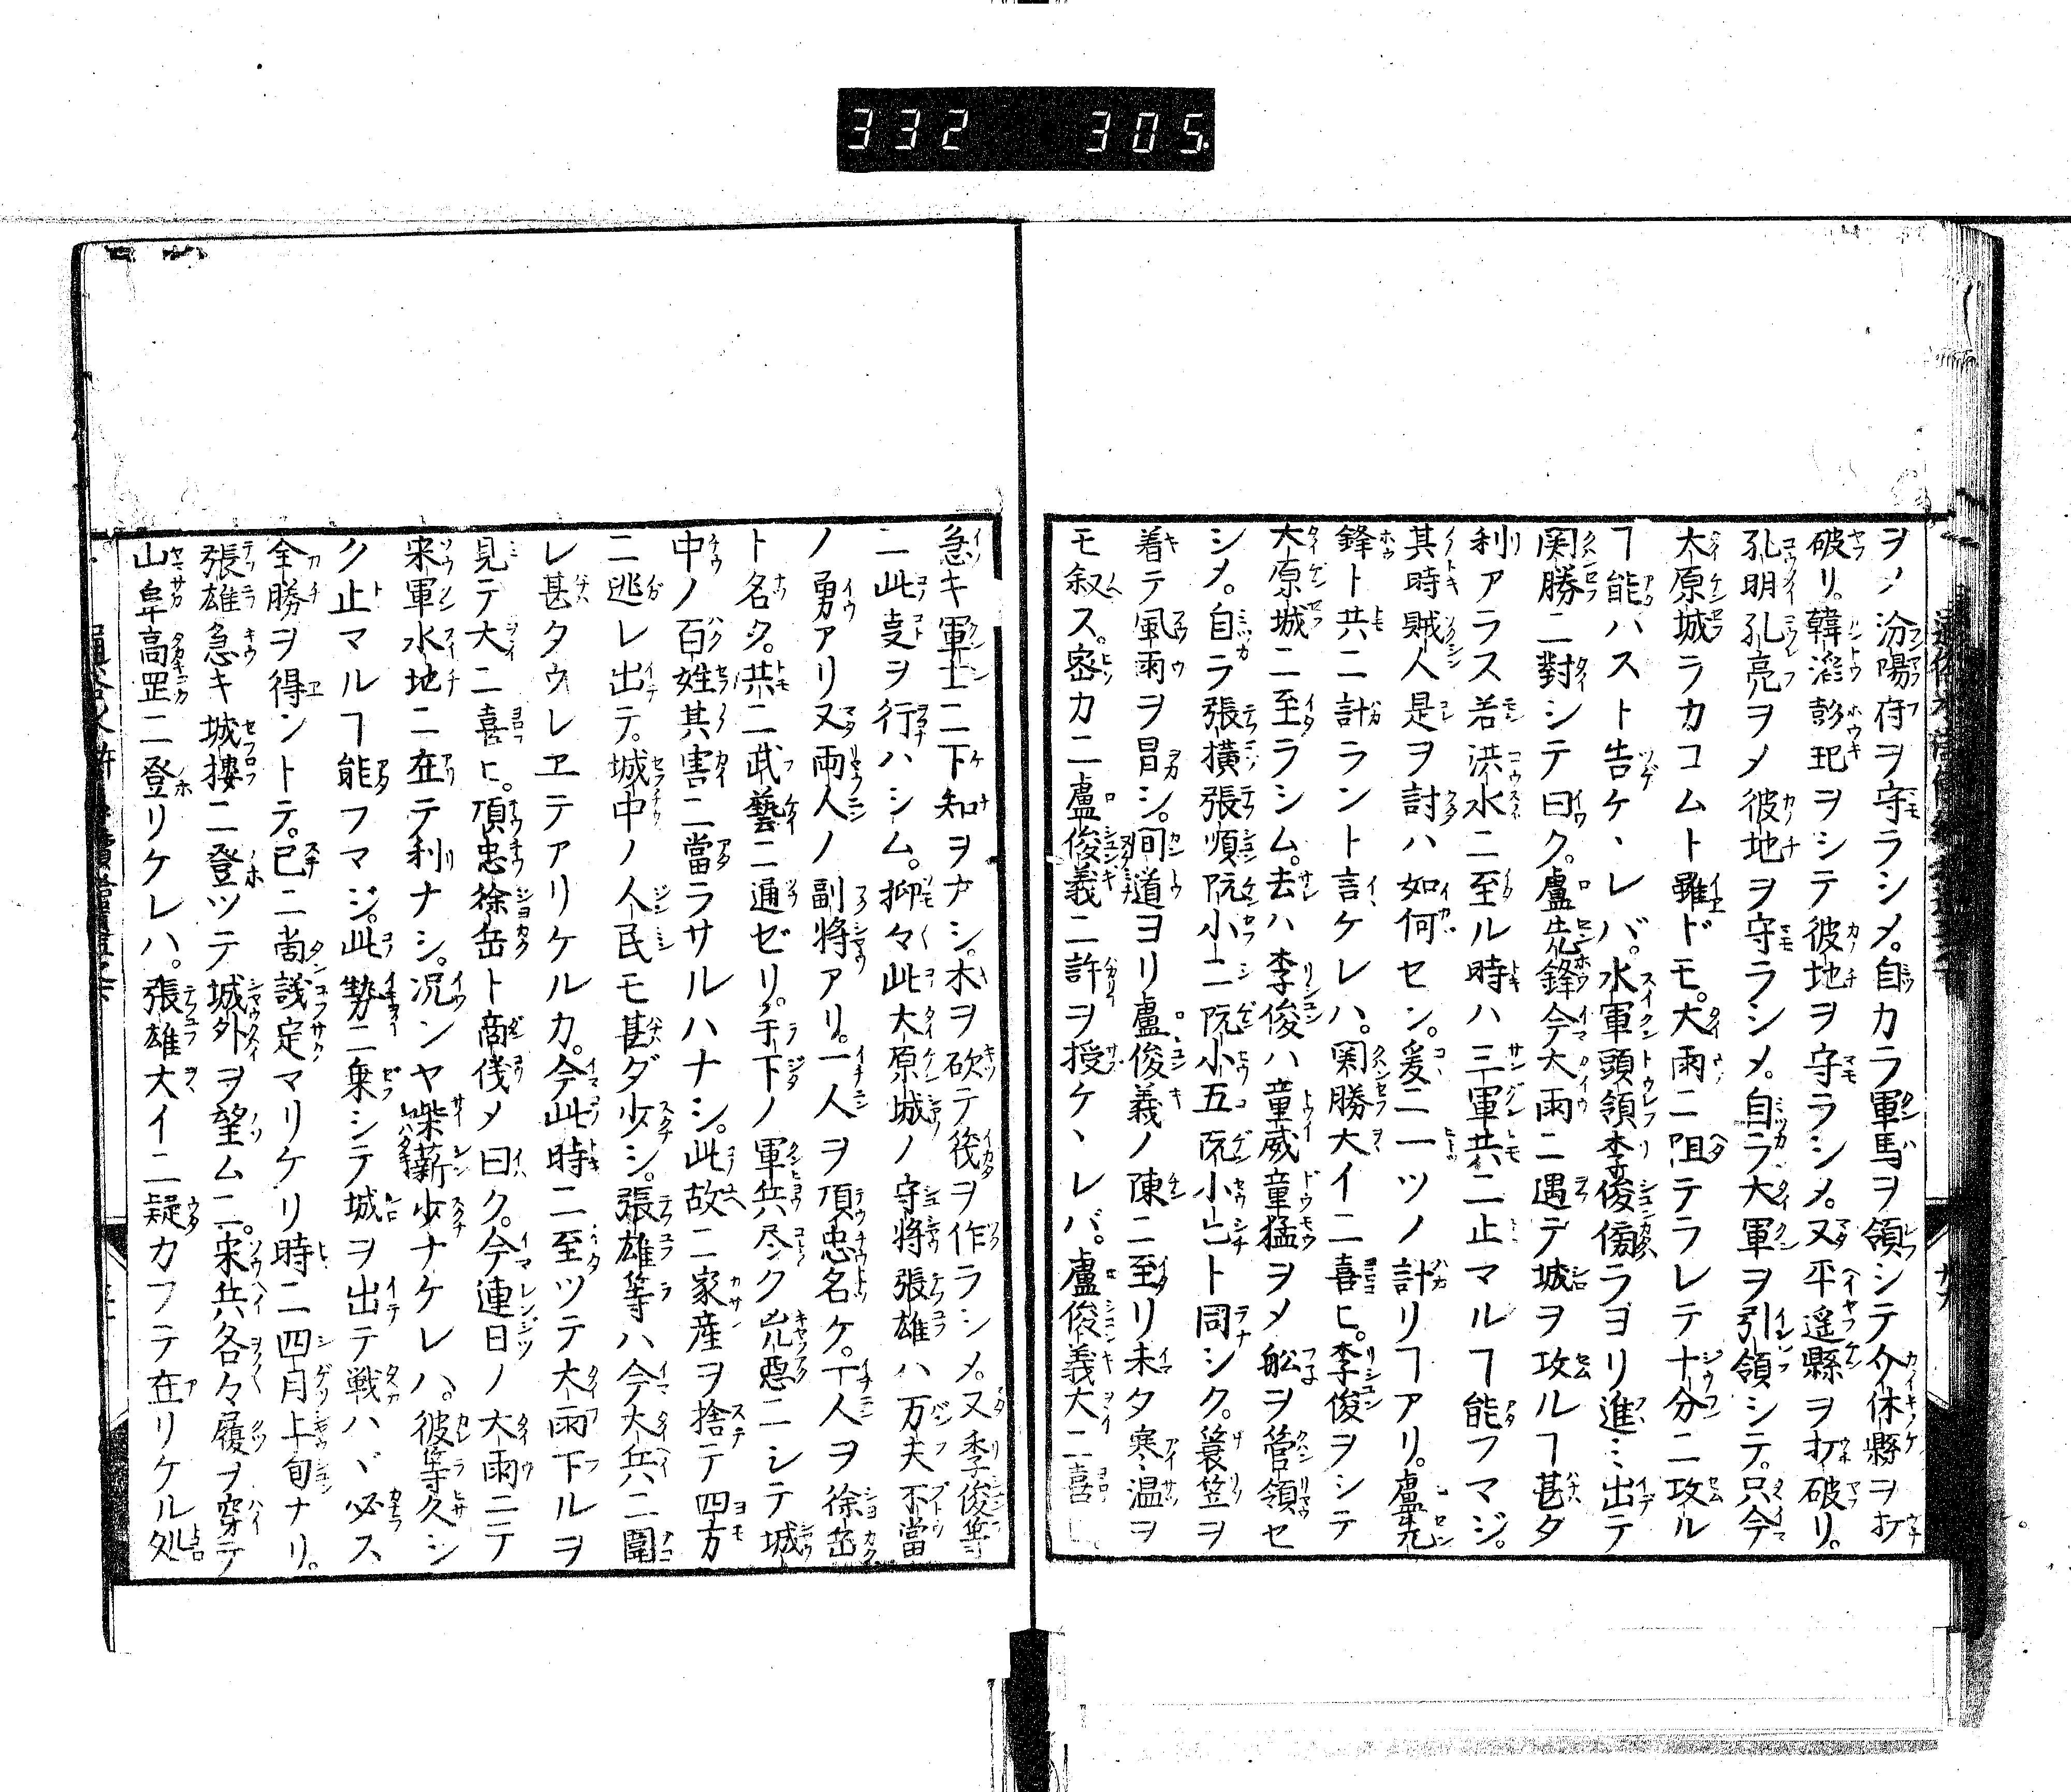 332 305
ヲノ汾陽府ヲ守ラシメ。自カラ軍馬ヲ領シテ介休縣ヲ打
破リ。韓滔彭玘ヲシテ彼地ヲ守ラシメ。又平遥縣ヲ打破リ。
孔明孔亮ヲメ彼地ヲ守ラシメ。自ラ大軍ヲ引領シテ。只今
太原城ラカコムト雖ドモ。大雨ニ阻テラレテ十分ニ攻ル
ヿ能ハスト告ケヽレバ。水軍頭領李俊傍ラヨリ進ミ出テ
関勝ニ對シテ曰ク。盧先鋒今大雨ニ遇テ城ヲ攻ルヿ甚タ
利アラス若洪水ニ至ル時ハ三軍共ニ止マルヿ能フマジ。
其時賊人是ヲ討ハ如何セン。爰ニ一ツノ計リヿアリ。盧先
鋒ト共ニ計ラント言ケレハ。関勝大イニ喜ヒ。李俊ヲシテ
大原城ニ至ラシム。去ハ李俊ハ童威童猛ヲメ舩ヲ管領セ
シメ。自ラ張横張順阮小二阮小五阮小七ト同シク。簑笠ヲ
着テ風雨ヲ冒シ。間道ヨリ盧俊義ノ陳ニ至リ未タ寒温ヲ
モ叙ス。密カニ盧俊義ニ許ヲ授ケヽレバ。盧俊義大ニ喜ヒ。
急キ軍士ニ下知ヲナシ。木ヲ砍テ筏ヲ作ラシメ。又李俊等
ニ此叓ヲ行ハシム。抑々此大原城ノ守将張雄ハ万夫不當
ノ勇アリ又両人ノ副将アリ。一人ヲ項忠名ケ。一人ヲ徐岳
ト名ク。共ニ武藝ニ通ゼリ。手下ノ軍兵尽ク兇惡ニシテ城
中ノ百姓其害ニ當ラサルハナシ。此故ニ家産ヲ捨テ四方
ニ逃レ出テ。城中ノ人民モ甚ダ少シ。張雄等ハ今大兵ニ圍
レ甚タウレヱテアリケルカ。今此時ニ至ツテ大雨下ルヲ
見テ大ニ喜ヒ。項忠徐岳ト商儀メ曰ク。今連日ノ大雨ニテ
宋軍水地ニ在テ利ナシ。况ンヤ柴薪少ナケレハ。彼等久シ
ク止マルヿ能フマジ。此勢ニ乗シテ城ヲ出テ戦ハヾ必ス
全勝ヲ得ントテ。已ニ啇議定マリケリ時ニ四月上旬ナリ。
張雄急キ城摟ニ登ツテ城外ヲ望ムニ。宋兵各々履ヲ穿テ
山阜高罡ニ登リケレハ。張雄大イニ疑カフテ在リケル処